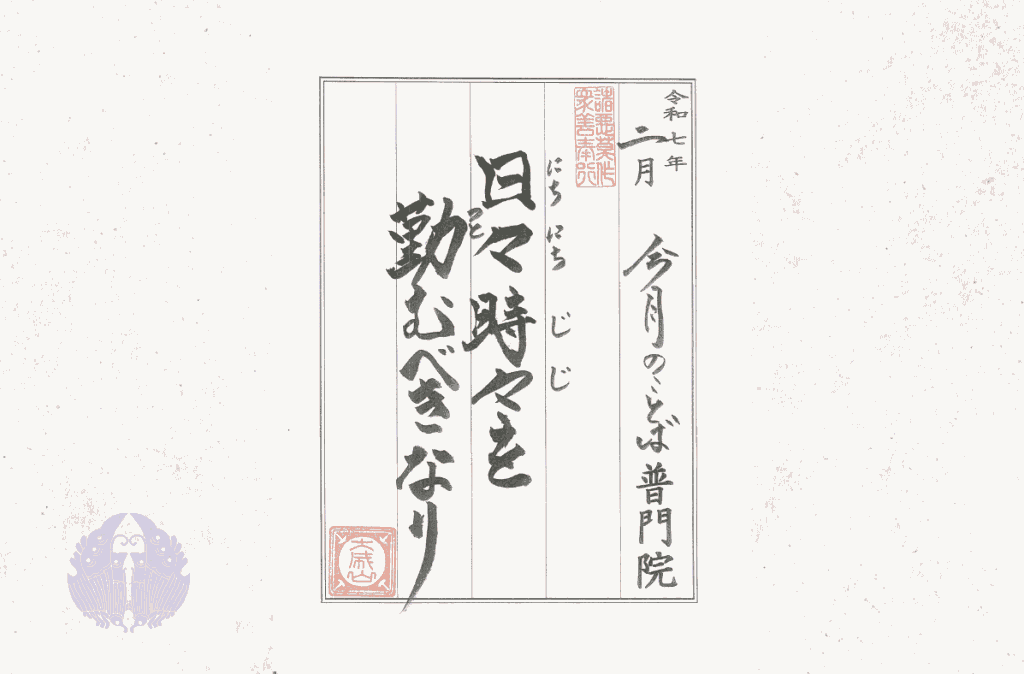 令和七年
二月
今月のことば 普門院
諸悪莫作
衆善奉行
にちにちじじ
日々時々を
つと
勤むべきなり